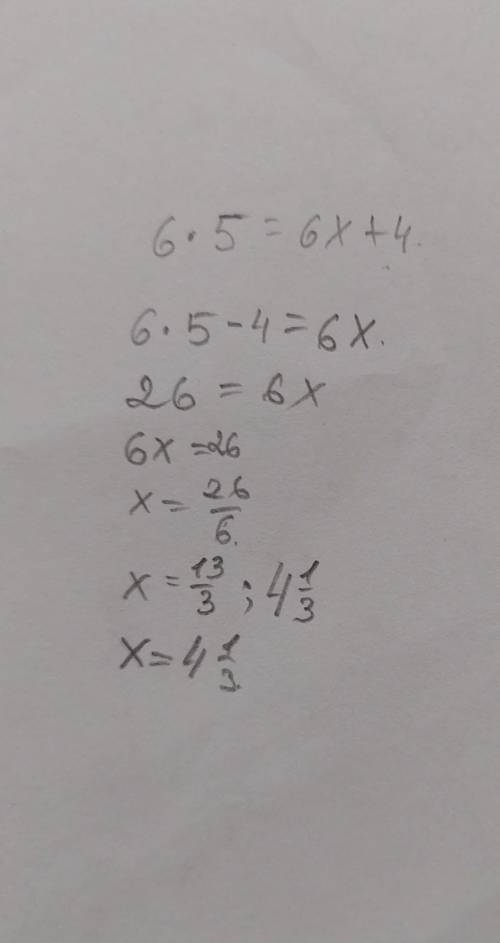 6·5=6x+4.
6·5-4=6x.
26=6x
6x=26
x=26/6.
x=13/3; 4 1/3
x=4 1/3